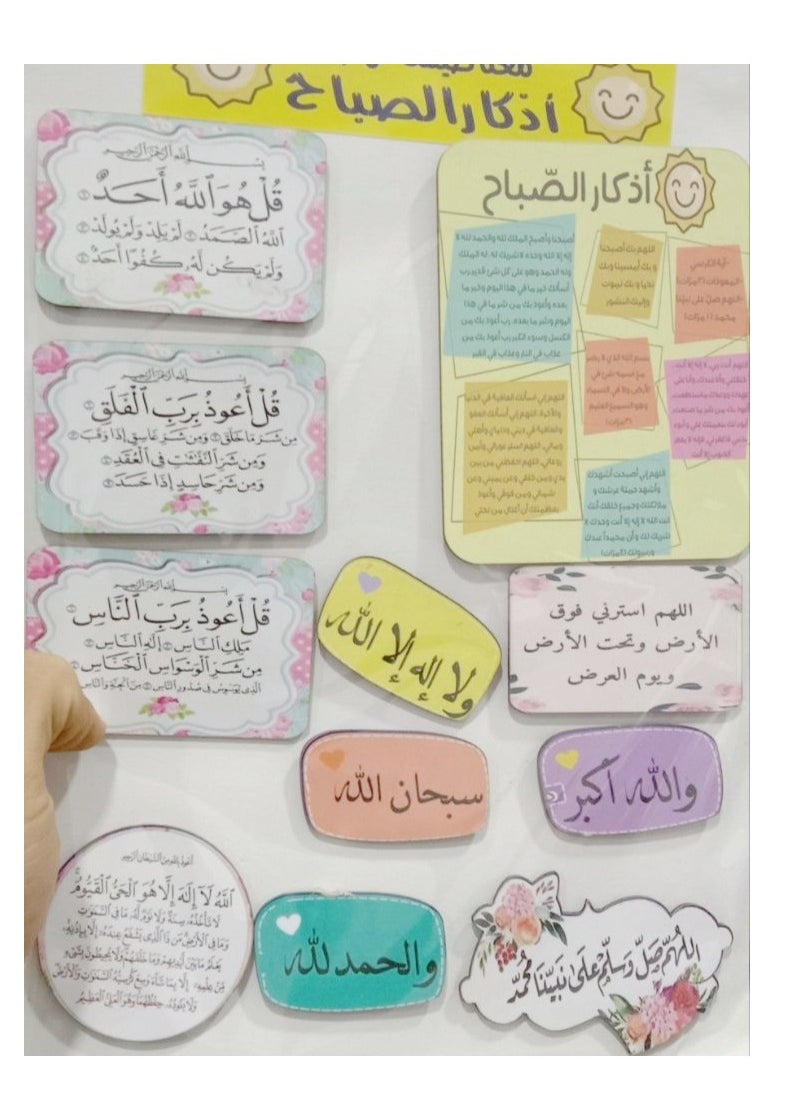 أذكار الصباح
بسم الله الرحمن الرحيم
قُلْ هُوَ ٱللَّهُ أَحَدٌ ①
ٱللَّهُ ٱلصَّمَدُ ② لَمْ يَلِدْ وَلَمْ يُولَدْ ③
وَلَمْ يَكُن لَّهُۥ كُفُوًا أَحَدٌ ④
بسم الله الرحمن الرحيم
قُلْ أَعُوذُ بِرَبِّ ٱلْفَلَقِ ①
مِن شَرِّ مَا خَلَقَ ② وَمِن شَرِّ غَاسِقٍ إِذَا وَقَبَ ③
وَمِن شَرِّ ٱلنَّفَّٰثَٰتِ فِى ٱلْعُقَدِ ④
وَمِن شَرِّ حَاسِدٍ إِذَا حَسَدَ ⑤
بسم الله الرحمن الرحيم
قُلْ أَعُوذُ بِرَبِّ ٱلنَّاسِ ①
مَلِكِ ٱلنَّاسِ ② إِلَٰهِ ٱلنَّاسِ ③
مِن شَرِّ ٱلْوَسْوَاسِ ٱلْخَنَّاسِ ④
ٱلَّذِى يُوَسْوِسُ فِى صُدُورِ ٱلنَّاسِ ⑤ مِنَ ٱلْجِنَّةِ وَٱلنَّاسِ
أذكار الصّباح
-آية الكرسي
-المعوذات (٣مرّات)
-اللهم صلّ على نبيّنا
محمد (١٠مرات)
اللهم بك أصبحنا
و بك أمسينا وبك
نحيا و بك نموت
وإليك النشور
أصبحنا وأصبح الملك لله والحمد لله لا
إله إلا الله وحده لا شريك له، له الملك
وله الحمد وهو على كل شئ قدير رب
أسألك خير ما في هذا اليوم وخير ما
بعده وأعوذ بك من شر ما في هذا
اليوم وشر ما بعده، رب أعوذ بك من
الكسل وسوء الكبر رب أعوذ بك من
عذاب في النار وعذاب في القبر
بسم الله الذي لا يضر
مع اسمه شئ في
الأرض ولا في السماء
وهو السميع العليم
(٣مرات)
اللهم أنت ربي، لا إله إلا أنت
خلقتني وأنا عبدك، وأنا على
عهدك ووعدك ما استطعت
أعوذ بك من شر ما صنعت
أبوء لك بنعمتك علي وأبوء
بذنبي فاغفر لي، فإنه لا يغفر
الذنوب إلا أنت
اللهم إني أسألك العافية في الدنيا
والآخرة، اللهم إني أسألك العفو
والعافية في ديني ودنياي وأهلي
ومالي، اللهم استر عوراتي وآمن
روعاتي، اللهم احفظني من بين
يدي ومن خلفي وعن يميني وعن
شمالي ومن فوقي وأعوذ
بعظمتك أن أغتال من تحتي
اللهم إني أصبحت أشهدك
وأشهد حملة عرشك و
ملائكتك وجميع خلقك أنك
أنت الله لا إله إلا أنت وحدك لا
شريك لك وأن محمداً عبدك
ورسولك (٤مرات)
اللهم استرني فوق
الأرض وتحت الأرض
ويوم العرض
ولا إله إلا الله
سبحان الله
والله أكبر
والحمد لله
أعوذ بالله من الشيطان الرجيم
ٱللَّهُ لَآ إِلَٰهَ إِلَّا هُوَ ٱلْحَىُّ ٱلْقَيُّومُ
لَا تَأْخُذُهُۥ سِنَةٌ وَلَا نَوْمٌ لَّهُۥ مَا فِى ٱلسَّمَٰوَٰتِ
وَمَا فِى ٱلْأَرْضِ مَن ذَا ٱلَّذِى يَشْفَعُ عِندَهُۥٓ إِلَّا بِإِذْنِهِۦ
يَعْلَمُ مَا بَيْنَ أَيْدِيهِمْ وَمَا خَلْفَهُمْ وَلَا يُحِيطُونَ بِشَىْءٍ
مِّنْ عِلْمِهِۦٓ إِلَّا بِمَا شَآءَ وَسِعَ كُرْسِيُّهُ ٱلسَّمَٰوَٰتِ وَٱلْأَرْضَ
وَلَا يَـُٔودُهُۥ حِفْظُهُمَا وَهُوَ ٱلْعَلِىُّ ٱلْعَظِيمُ
اللهُمَّ صَلِّ وَسَلِّمْ عَلَى نَبِيِّنَا مُحَمَّدٍ